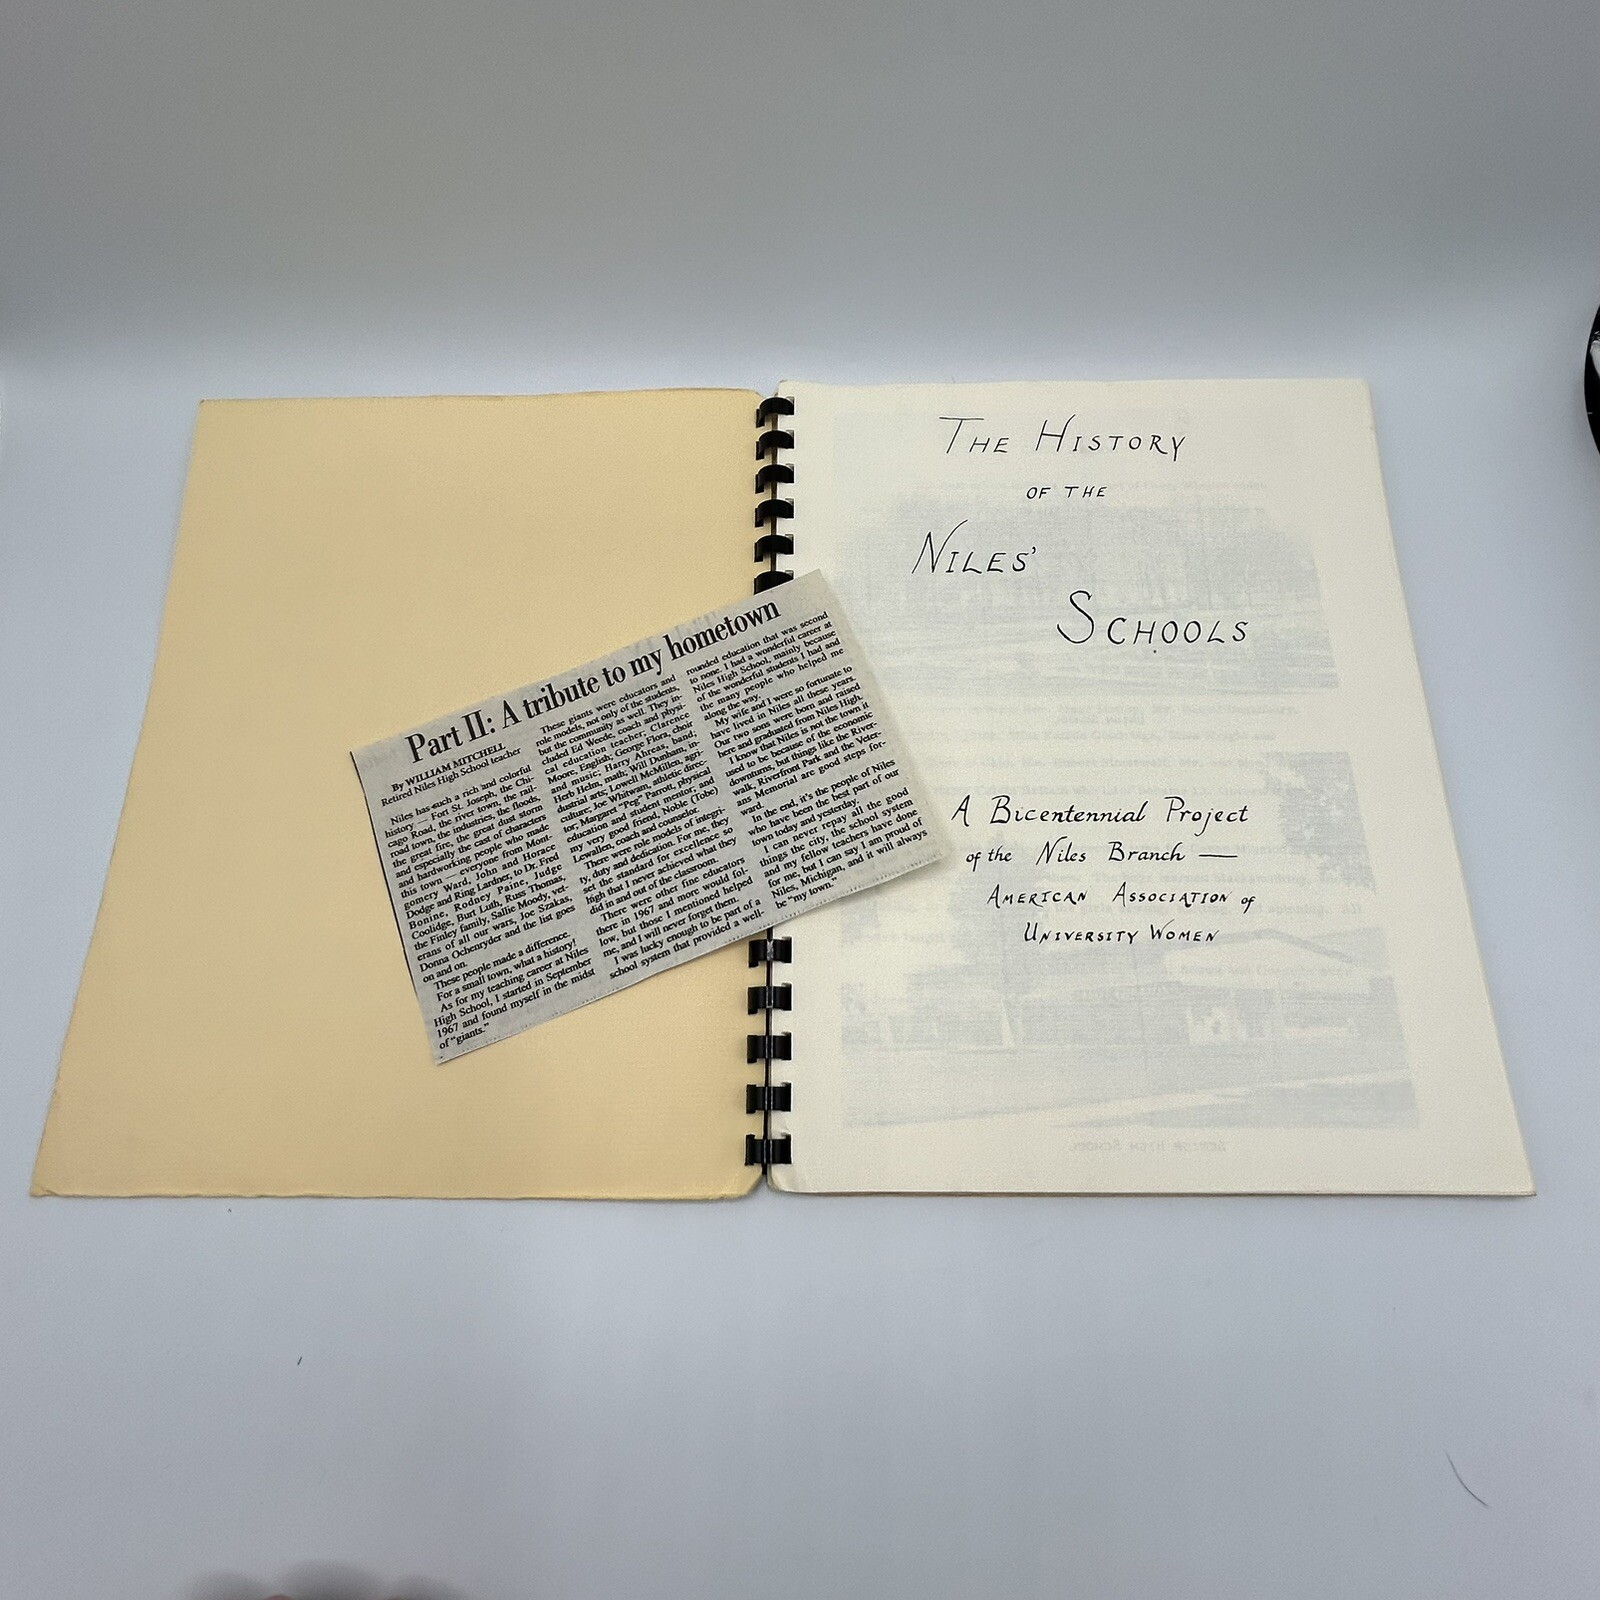 Part II: A tribute to my hometown
By WILLIAM MITCHELL
Retired Niles High School teacher
Niles has such a rich and colorful
history — Fort St. Joseph, the Chi-
cago Road, the river town, the rail-
road town, the industries, the floods,
the great fire, the great dust storm
and especially the cast of characters
and hardworking people who made
this town — everyone from Mont-
gomery Ward, John and Horace
Dodge and Ring Lardner, to Dr. Fred
Bonine, Rodney Paine, Judge
Coolidge, Burt Luth, Russ Thomas,
the Finley family, Sallie Moody, vet-
erans of all our wars, Joe Szakas,
Donna Ochenryder and the list goes
on and on.
These people made a difference.
For a small town, what a history!
As for my teaching career at Niles
High School, I started in September
1967 and found myself in the midst
of "giants."
These giants were educators and
role models, not only of the students,
but the community as well. They in-
cluded Ed Weede, coach and physi-
cal education teacher; Clarence
Moore, English; George Flora, choir
and music; Harry Ahreas, band;
Herb Helm, math; Will Dunham, in-
dustrial arts; Lowell McMillen, agri-
culture; Joe Whitwam, athletic direc-
tor; Margaret "Peg" Parrott, physical
education and student mentor; and
my very good friend, Noble (Tobe)
Lewallen, coach and counselor.
There were role models of integri-
ty, duty and dedication. For me, they
set the standard for excellence so
high that I never achieved what they
did in and out of the classroom.
There were other fine educators
there in 1967 and more would fol-
low, but those I mentioned helped
me, and I will never forget them.
I was lucky enough to be part of a
school system that provided a well-
rounded education that was second
to none. I had a wonderful career at
Niles High School, mainly because
of the wonderful students I had and
the many people who helped me
along the way.
My wife and I were so fortunate to
have lived in Niles all these years.
Our two sons were born and raised
here and graduated from Niles High.
I know that Niles is not the town it
used to be because of the economic
downturns, but things like the River-
walk, Riverfront Park and the Veter-
ans Memorial are good steps for-
ward.
In the end, it's the people of Niles
who have been the best part of our
town today and yesterday.
I can never repay all the good
things the city, the school system
and my fellow teachers have done
for me, but I can say I am proud of
Niles, Michigan, and it will always
be "my town."
THE HISTORY
OF THE
NILES'
SCHOOLS
A Bicentennial Project
of the Niles Branch —
AMERICAN ASSOCIATION of
UNIVERSITY WOMEN
SENIOR HIGH SCHOOL